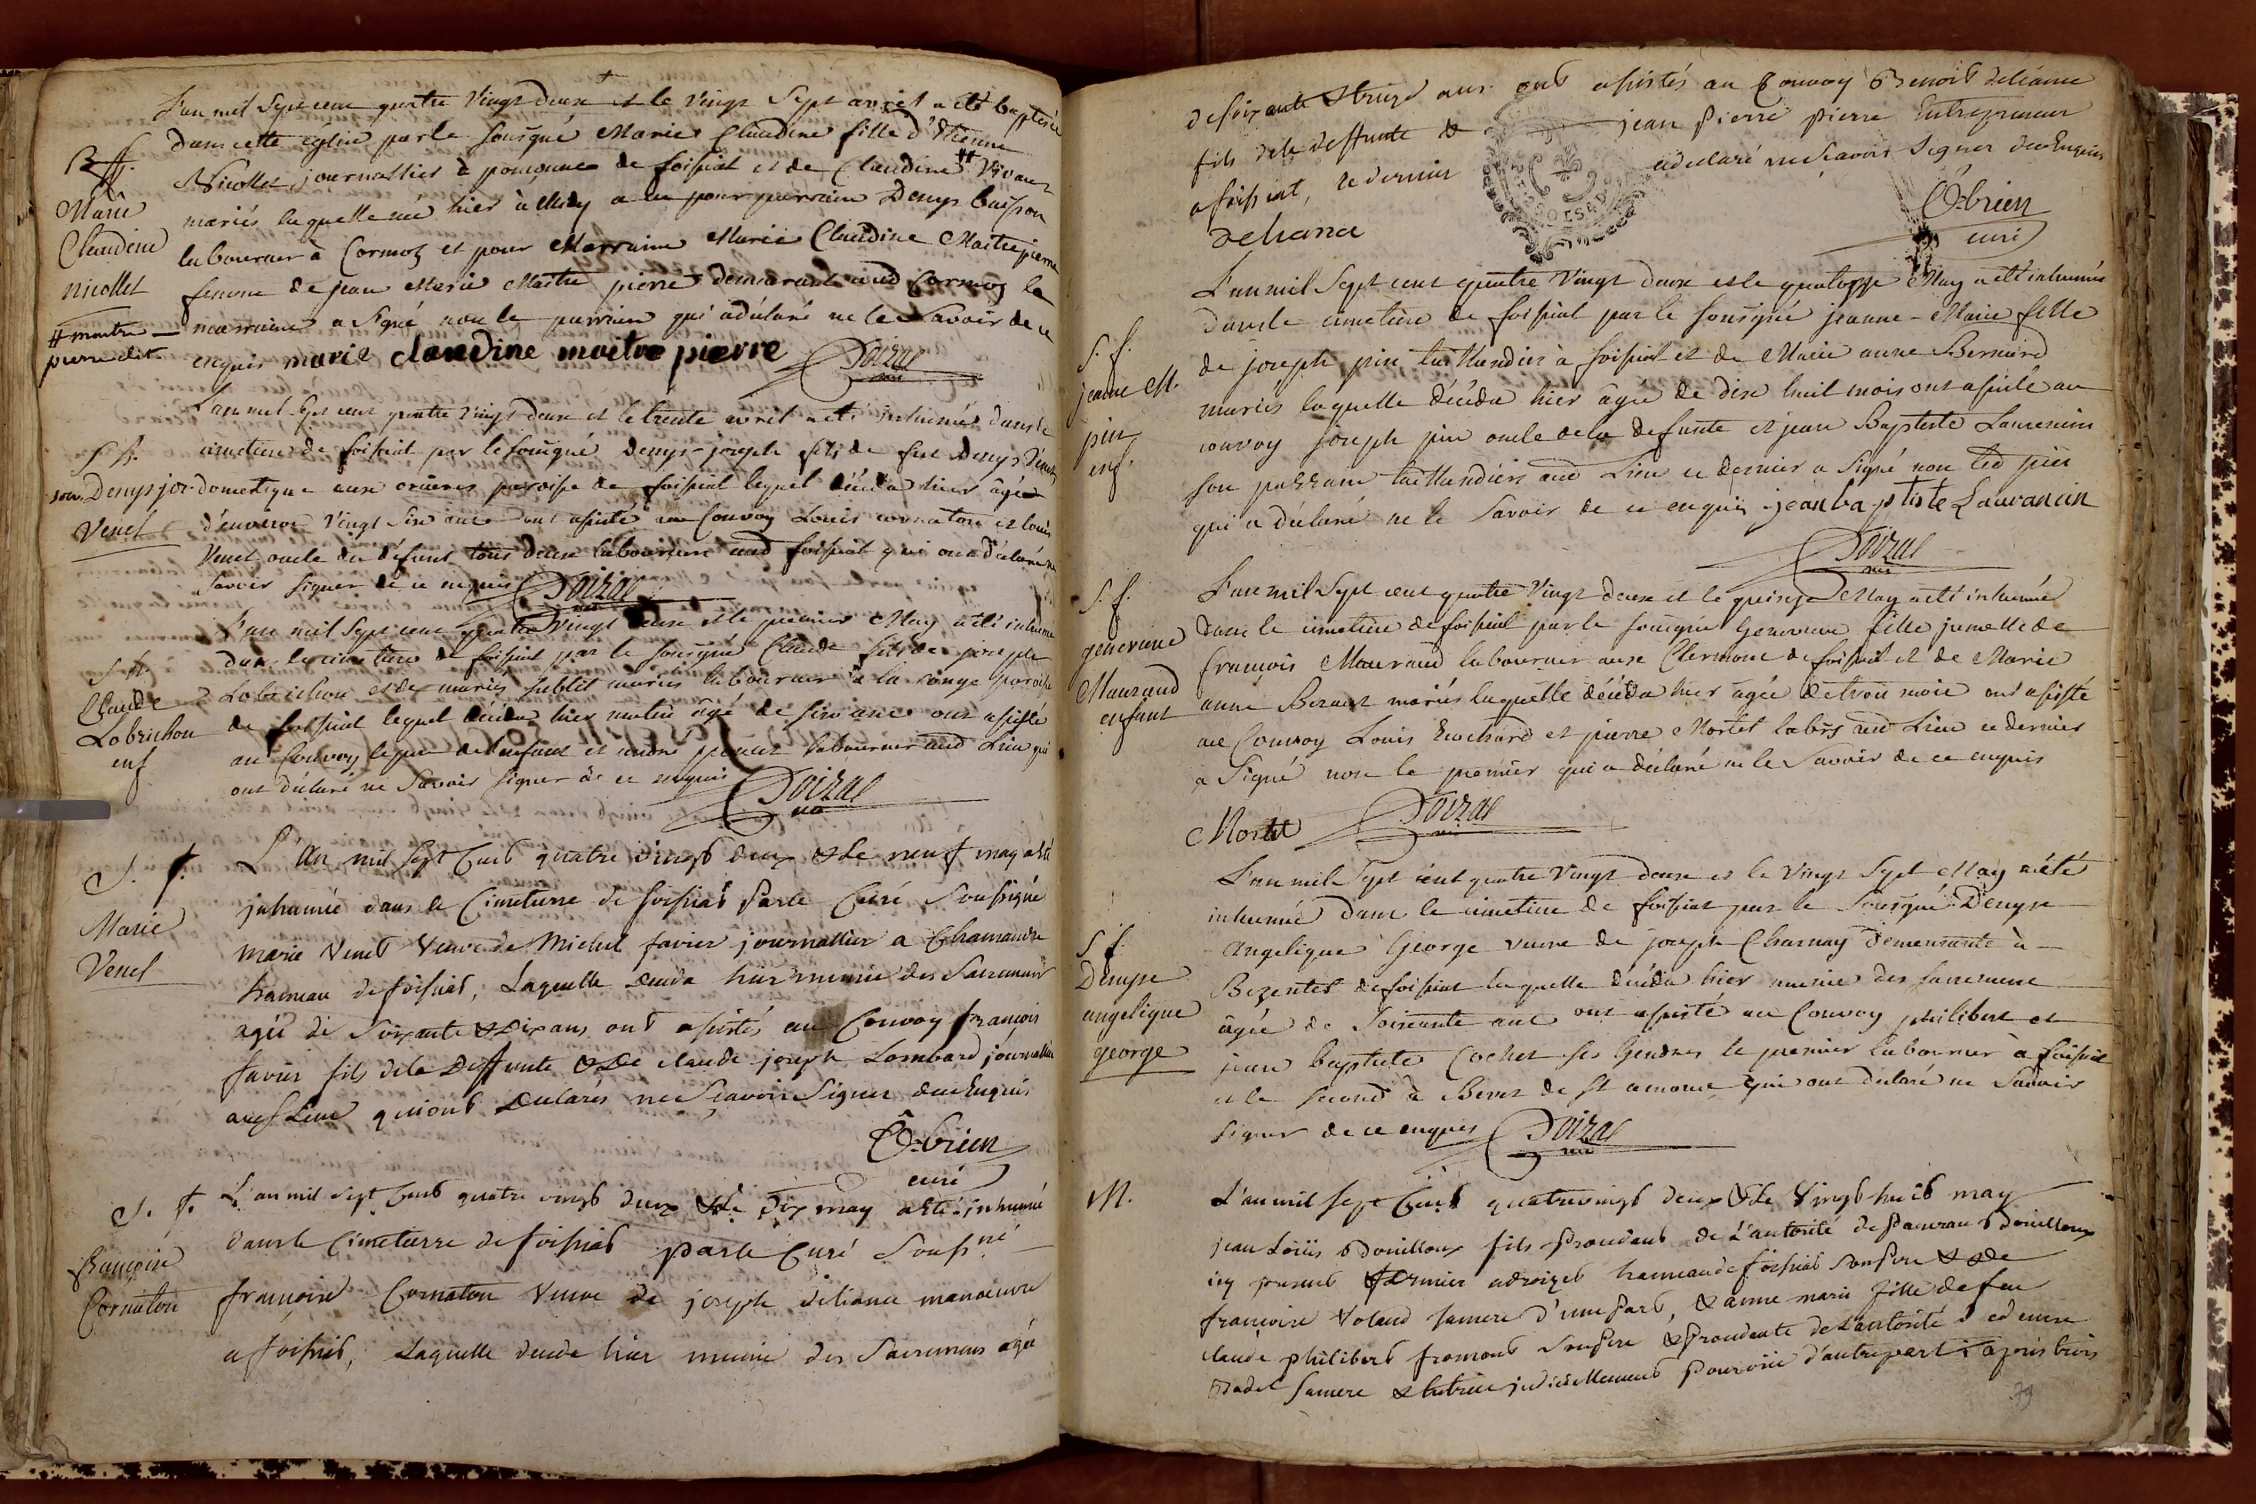 L'an mil Sept cent quatre Vingt deux et le vingt Sept avril a été baptisée
dans cette église par le Sousigné Marie Claudine fille d'Etienne
B. ff.
Marie
Claudine
nicollet
Nicollet journallier à de foissiat et de Claudine # Vivant
mariés laquelle née hier à Midy a eu pour parrain Denys buisson
laboureur à Cormoz et pour Marraine Marie Claudine Maitrepierre
femme de jean Marie Maitre pierre demeurant aud Cormoz la
# maitre
pierre dit
marraine a Signé non le parrain qui a déclaré ne le Savoir de ce
enquis marie claudine maitre pierre Poizac
L'an mil Sept cent quatre vingt deux et le trente avril a été inhumé dans le
S. ff.
Denys jos.
Venet
cimetiere de foissiat par le sousigné Denys-joseph fils de feu Denys Venet
domestique aux paroisse de foissiat lequel décéda hier âgé
d'environ Vingt Six ans ont assisté au Convoy Louis cornaton et louis
Venet oncle du défunt tous deux laboureurs aud foissiat qui ont déclaré ne
Savoir Signer de ce enquis Poizac
L'an mil Sept cent quatre Vingt deux et le premier May a été inhumé
S. ff.
Claude
Lobrichon
enf
dans le cimetiere de foissiat par le sousigné Claude fils de joseph
Lobrichon et de mariés laboureur à la paroisse
de foissiat lequel décéda hier matin âgé de Six ans ont assisté
au Convoy le pere de l'enfant et laboureur aud Lieu qui
ont déclaré ne Savoir Signer de ce enquis Poizac
S. f.
Marie
Venet
L'an mil Sept Cent quatre vingt deux & Le neuf may a été
inhumée dans le Cimetierre de foissiat par le Curé Soussigné
marie Venet Veuve de Michel favier journallier a Chamandre
hameau de foissiat, Laquelle deceda hier munie des Sacremens
agée de Soixante & Dix ans ont assistés au Convoy francois
favier fils de la Deffunte & De claude joseph Lombard journallier
auss Lieu qui ont Declarés ne Sçavoir Signer de ce Enquis
O-brien
curé
S. f.
françoise
Cornaton
L'an mil Sept Cent quatre vingt deux & Le Dix may a été inhumée
dans le Cimetierre de foissiat par le Curé Souss.né
françoise Cornaton Veuve de joseph deliance manoeuvre
a foissiat, Laquelle deceda hier munie des Sacremens agée
de soixante & treize ans ont assistés au Convoy Benoit deliance
fils de la deffunte & jean Pierre pierre Entrepreneur
a foissiat, ce dernier a declaré ne Sçavoir Signer de ce Enquis
deliance
O-brien
curé
L'an mil Sept cent quatre Vingt deux et le quatorze May a été inhumée
S. f.
jeanne M.
pin
enf.
dans le cimetiere de foissiat par le sousigné jeanne-Marie fille
de joseph pin taillandier à foissiat et de Marie anne Bernard
mariés laquelle décéda hier âgée de dix huit mois ont assisté au
convoy joseph pin oncle de la defunte et jean Baptiste Laurencin
son parrain taillandiers aud Lieu ce dernier a Signé non led pin
qui a déclaré ne le Savoir de ce enquis jean baptiste Laurancin
Poizac
L'an mil Sept cent quatre Vingt deux et le quinze May a été inhumée
S. f.
genevieve
Mauraud
enfant
dans le cimetiere de foissiat par le sousigné Genevieve fille jumelle de
françois Mauraud laboureur aux Clermont de foissiat et de Marie
anne mariés laquelle décéda hier agée de trois mois ont assisté
au Convoy Louis et pierre Mortel labrs aud Lieu ce dernier
a Signé non le premier qui a déclaré ne le Savoir de ce enquis
Mortel Poizac
L'an mil Sept cent quatre Vingt deux et le Vingt Sept May a été
inhumée dans le cimetiere de foissiat par le Sousigné Denyse
S. f.
Denyse
angelique
george
Angelique George veuve de joseph Charnay demeurante à
Bezentet de foissiat laquelle décéda hier munie des sacremens
âgée de Soixante ans ont assisté au Convoy philibert et
jean baptiste Cochet ses Gendres le premier laboureur à foissiat
et le second à de St amour qui ont déclaré ne Savoir
signer de ce enquis Poizac
M.
L'an mil sept Cent quatrevingt deux & Le Vingt huit may
jean Loüis Douilloux fils procedant de L'autorité de Douilloux
icy present fermier hameau de foissiat Son pere & de
françoise Voland sa mere d'une part, & anne marie fille de feu
claude philibert fromont Son pere & procedante de L'autorité d'edmee
sa mere & tutrice judiciellement pourvüe d'autre part apres trois
79